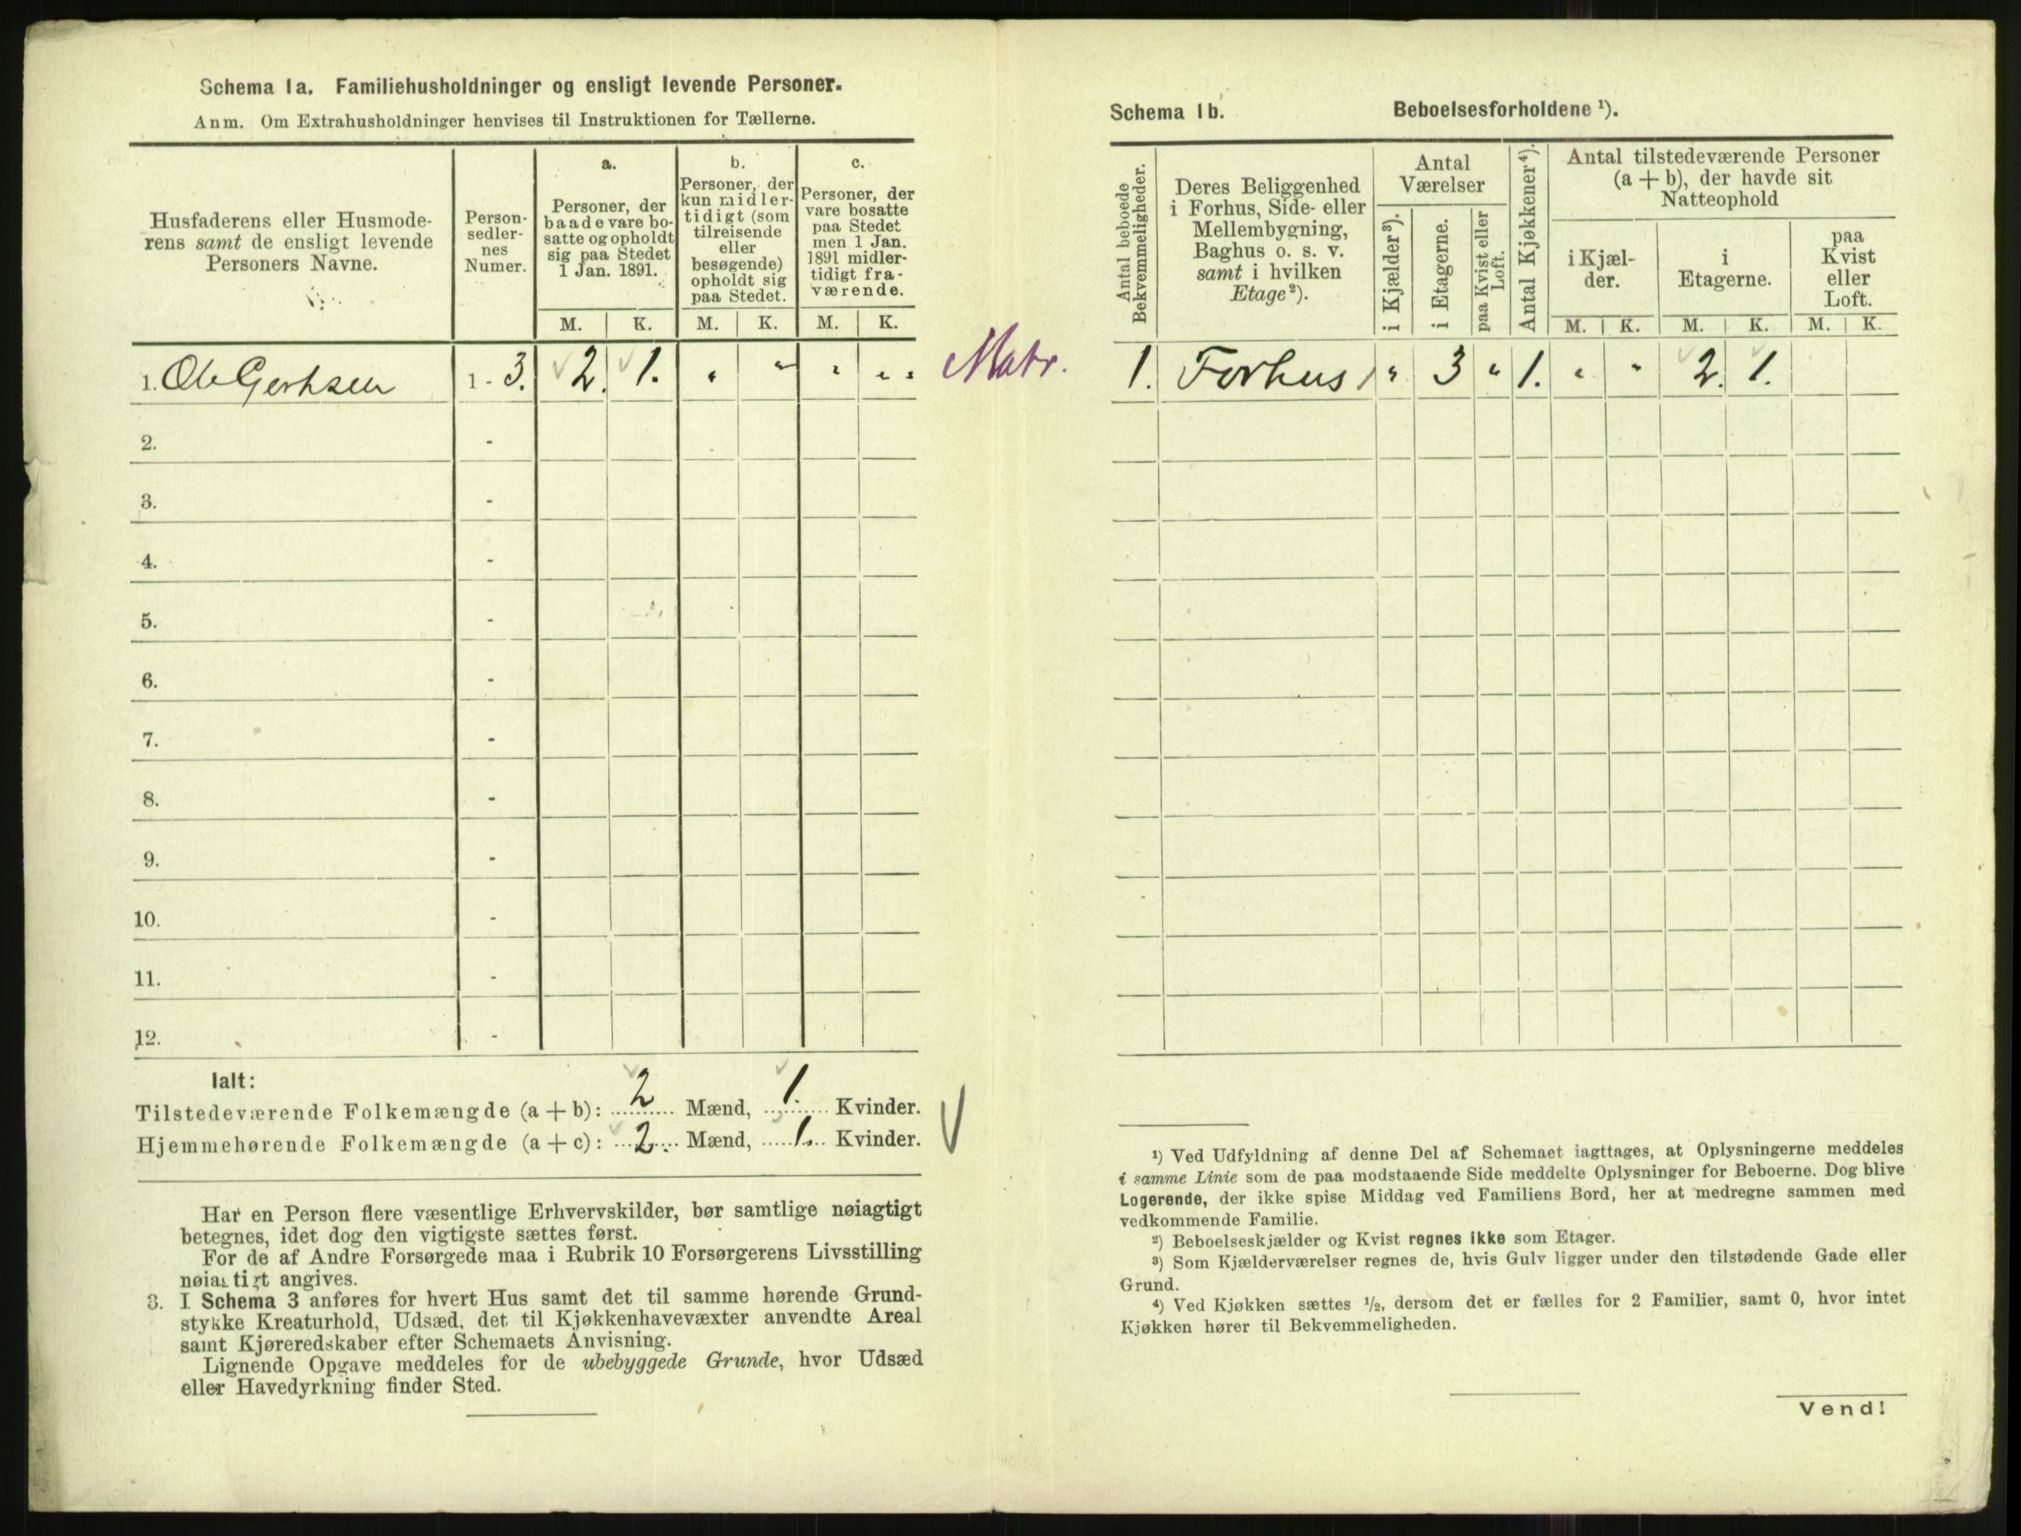 Schema 1a. Familiehusholdninger og ensligt levende Personer.
Anm. Om Extrahusholdninger henvises til Instruktionen for Tællerne.
Husfaderens eller Husmode-
rens samt de ensligt levende
Personers Navne.
Person-
sedler-
nes
Numer.
a.
Personer, der
baade vare bo-
satte og opholdt
sig paa Stedet
1 Jan. 1891.
b.
Personer, der
kun midler-
tidigt (som
tilreisende
eller
besøgende)
opholdt sig
paa Stedet.
c.
Personer, der
vare bosatte
paa Stedet
men 1 Jan.
1891 midler-
tidigt fra-
værende.
M. K. M. K. M. K.
1. Ole Gerhsen 1 - 3. 2. 1. " " " "
2. -
3. -
4. -
5. -
6. -
7. -
8. -
9. -
10. -
11. -
12. -
Ialt:
Tilstedeværende Folkemængde (a + b): 2 Mænd, 1. Kvinder.
Hjemmehørende Folkemængde (a + c): 2. Mænd, 1. Kvinder.
Har en Person flere væsentlige Erhvervskilder, bør samtlige nøiagtigt
betegnes, idet dog den vigtigste sættes først.
For de af Andre Forsørgede maa i Rubrik 10 Forsørgerens Livsstilling
nøiagtigt angives.
3. I Schema 3 anføres for hvert Hus samt det til samme hørende Grund-
stykke Kreaturhold, Udsæd, det til Kjøkkenhavevæxter anvendte Areal
samt Kjøreredskaber efter Schemaets Anvisning.
Lignende Opgave meddeles for de ubebyggede Grunde, hvor Udsæd
eller Havedyrkning finder Sted.
Matr.
Schema 1b. Beboelsesforholdene ¹).
Antal beboede
Bekvemmeligheder.
Deres Beliggenhed
i Forhus, Side- eller
Mellembygning,
Baghus o. s. v.
samt i hvilken
Etage²).
Antal
Værelser
i Kjælder³).
i Etagerne.
paa Kvist eller
Loft.
Antal Kjøkkener⁴).
Antal tilstedeværende Personer
(a + b), der havde sit
Natteophold
i Kjæl-
der.
i
Etagerne.
paa
Kvist
eller
Loft.
M. K. M. K. M. K.
1. Forhus 1 " 3 " 1. " " 2. 1.
¹) Ved Udfyldning af denne Del af Schemaet iagttages, at Oplysningerne meddeles
i samme Linie som de paa modstaaende Side meddelte Oplysninger for Beboerne. Dog blive
Logerende, der ikke spise Middag ved Familiens Bord, her at medregne sammen med
vedkommende Familie.
²) Beboelseskjælder og Kvist regnes ikke som Etager.
³) Som Kjælderværelser regnes de, hvis Gulv ligger under den tilstødende Gade eller
Grund.
⁴) Ved Kjøkken sættes ½, dersom det er fælles for 2 Familier, samt 0, hvor intet
Kjøkken hører til Bekvemmeligheden.
Vend!